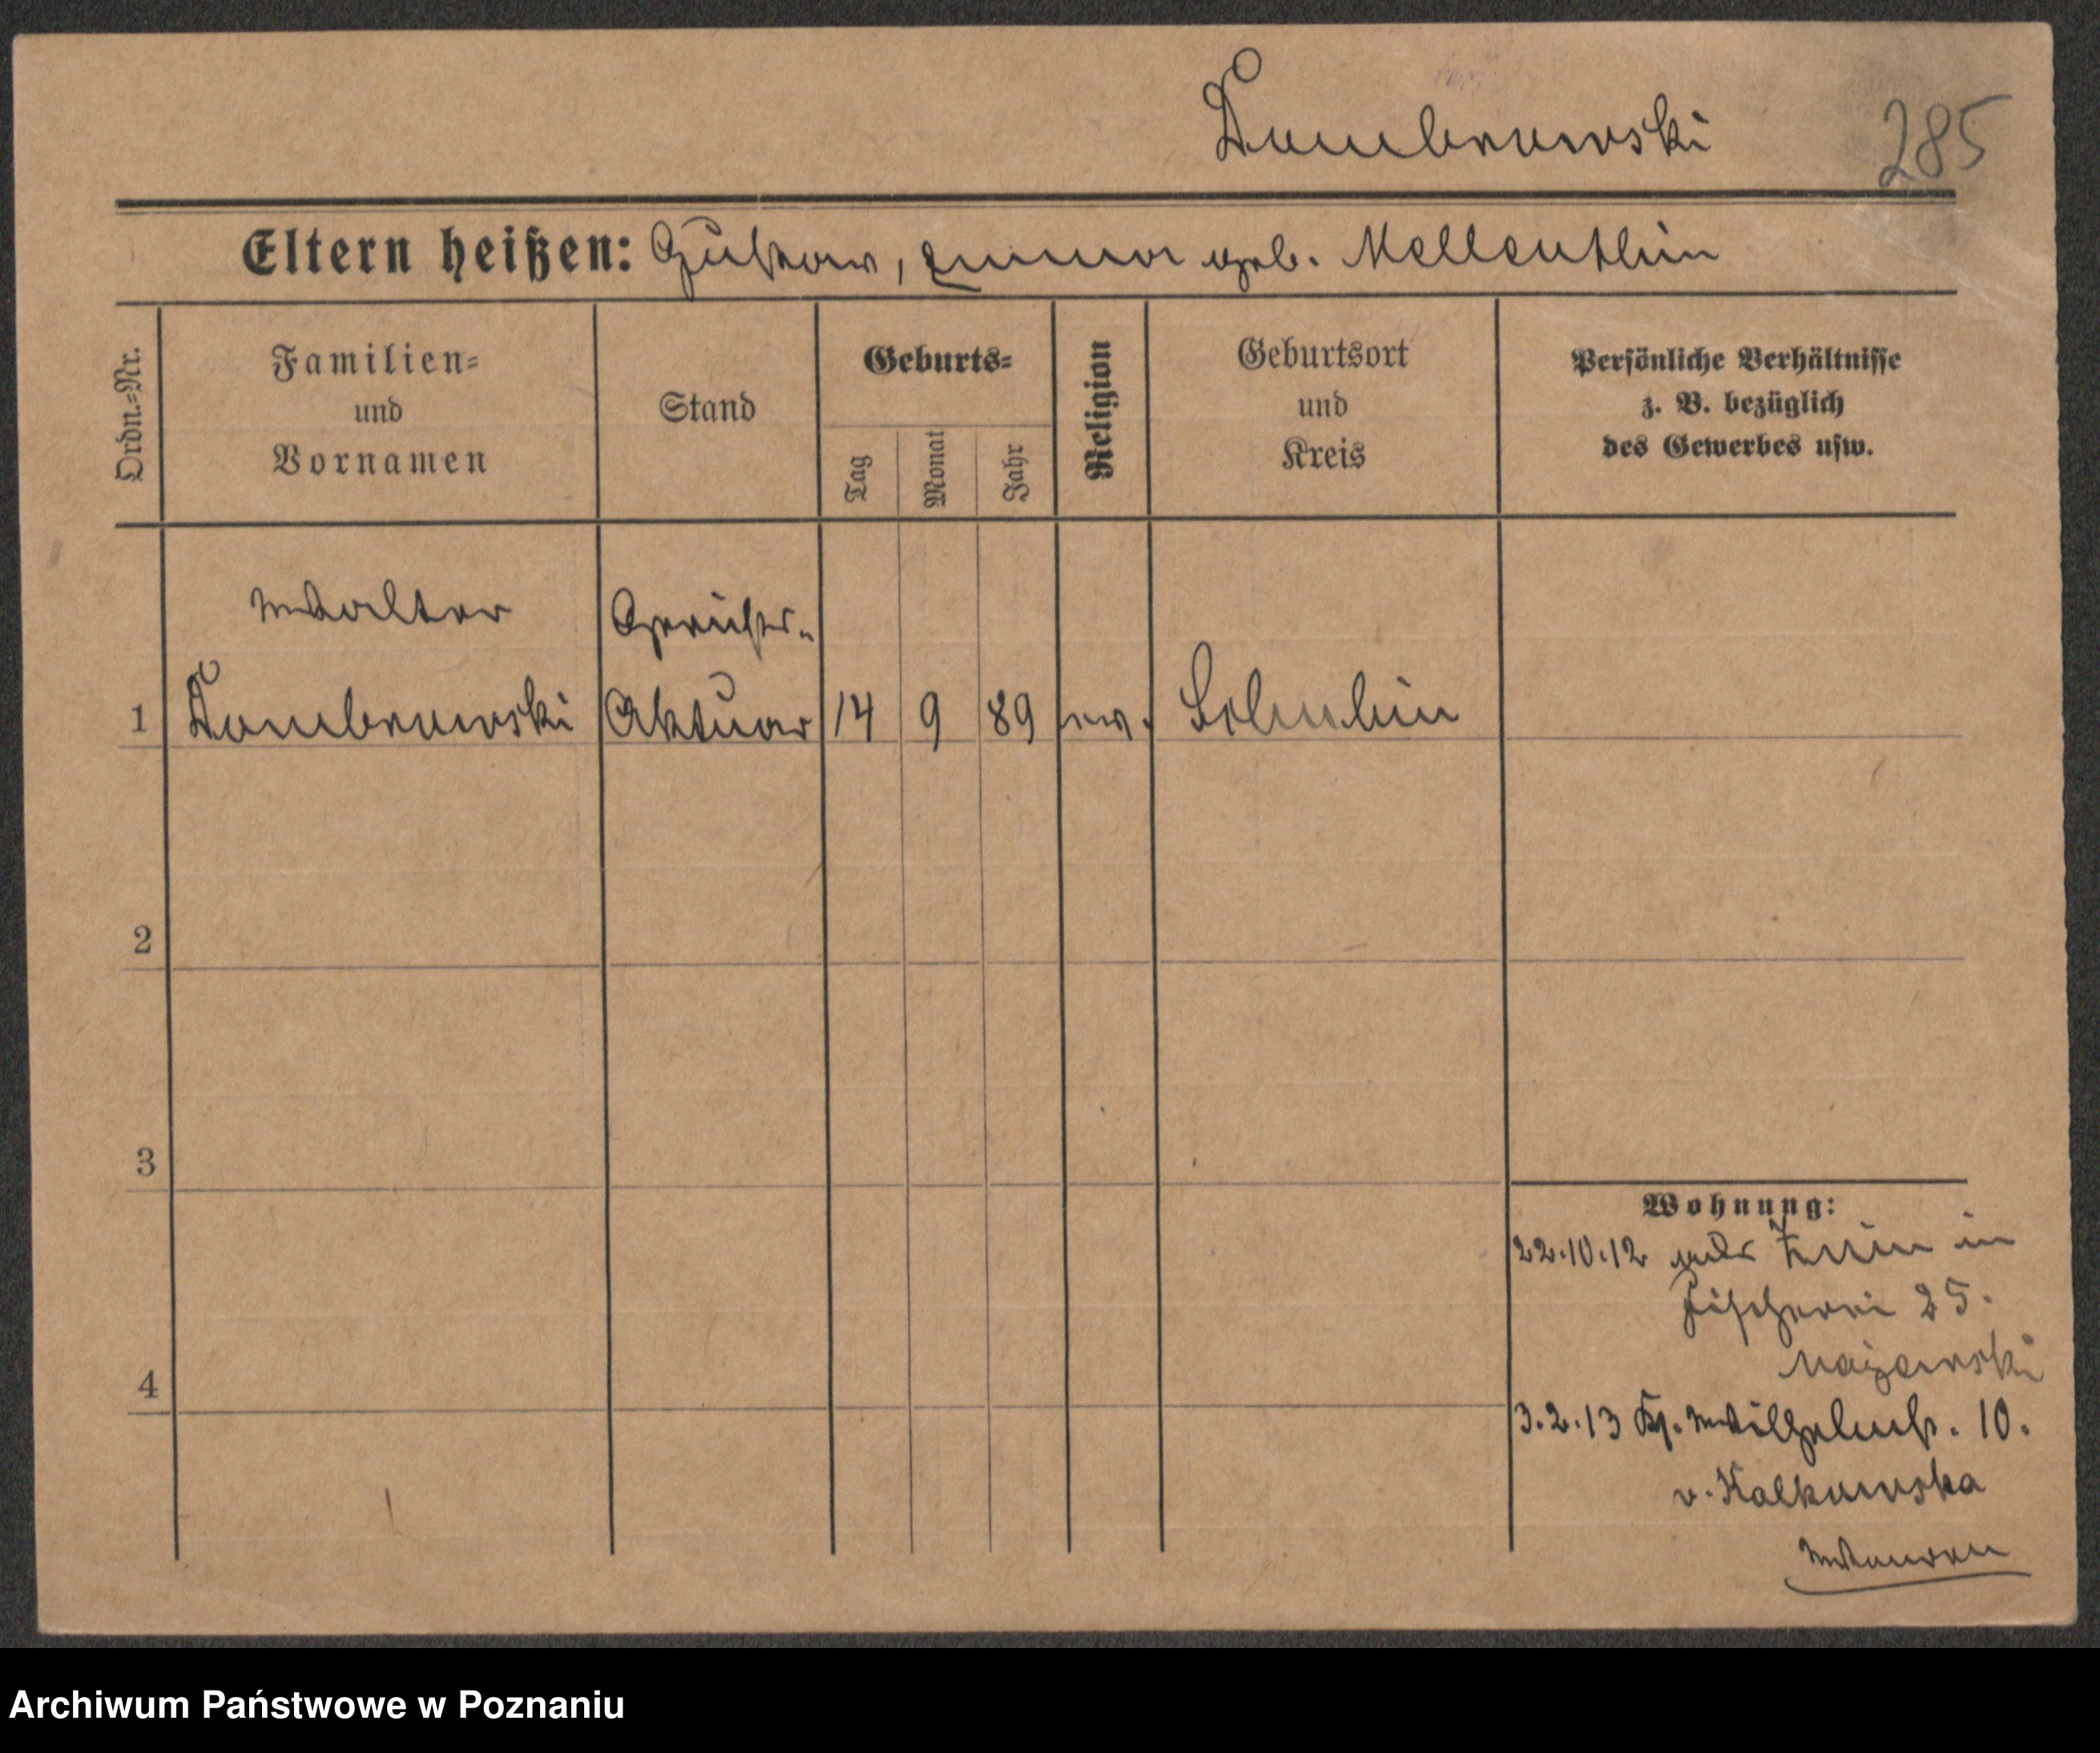 Dombrowski
285
Eltern heißen: Gustav, Emma geb. Mellenthin
Ordn.-Nr.
Familien-
und
Vornamen
Stand
Geburts-
Tag
Monat
Jahr
Religion
Geburtsort
und
Kreis
Persönliche Verhältnisse
z. B. bezüglich
des Gewerbes usw.
Walter
Gerichts-
1 Dombrowski Aktuar 14 9 89 ev. Schubin
2
3
4
Wohnung:
22.10.12 aus Exin in
Fischerei 25.
3.2.13 Kg. Wilhelmstr. 10.
v. Kalkowska
Archiwum Państwowe w Poznaniu